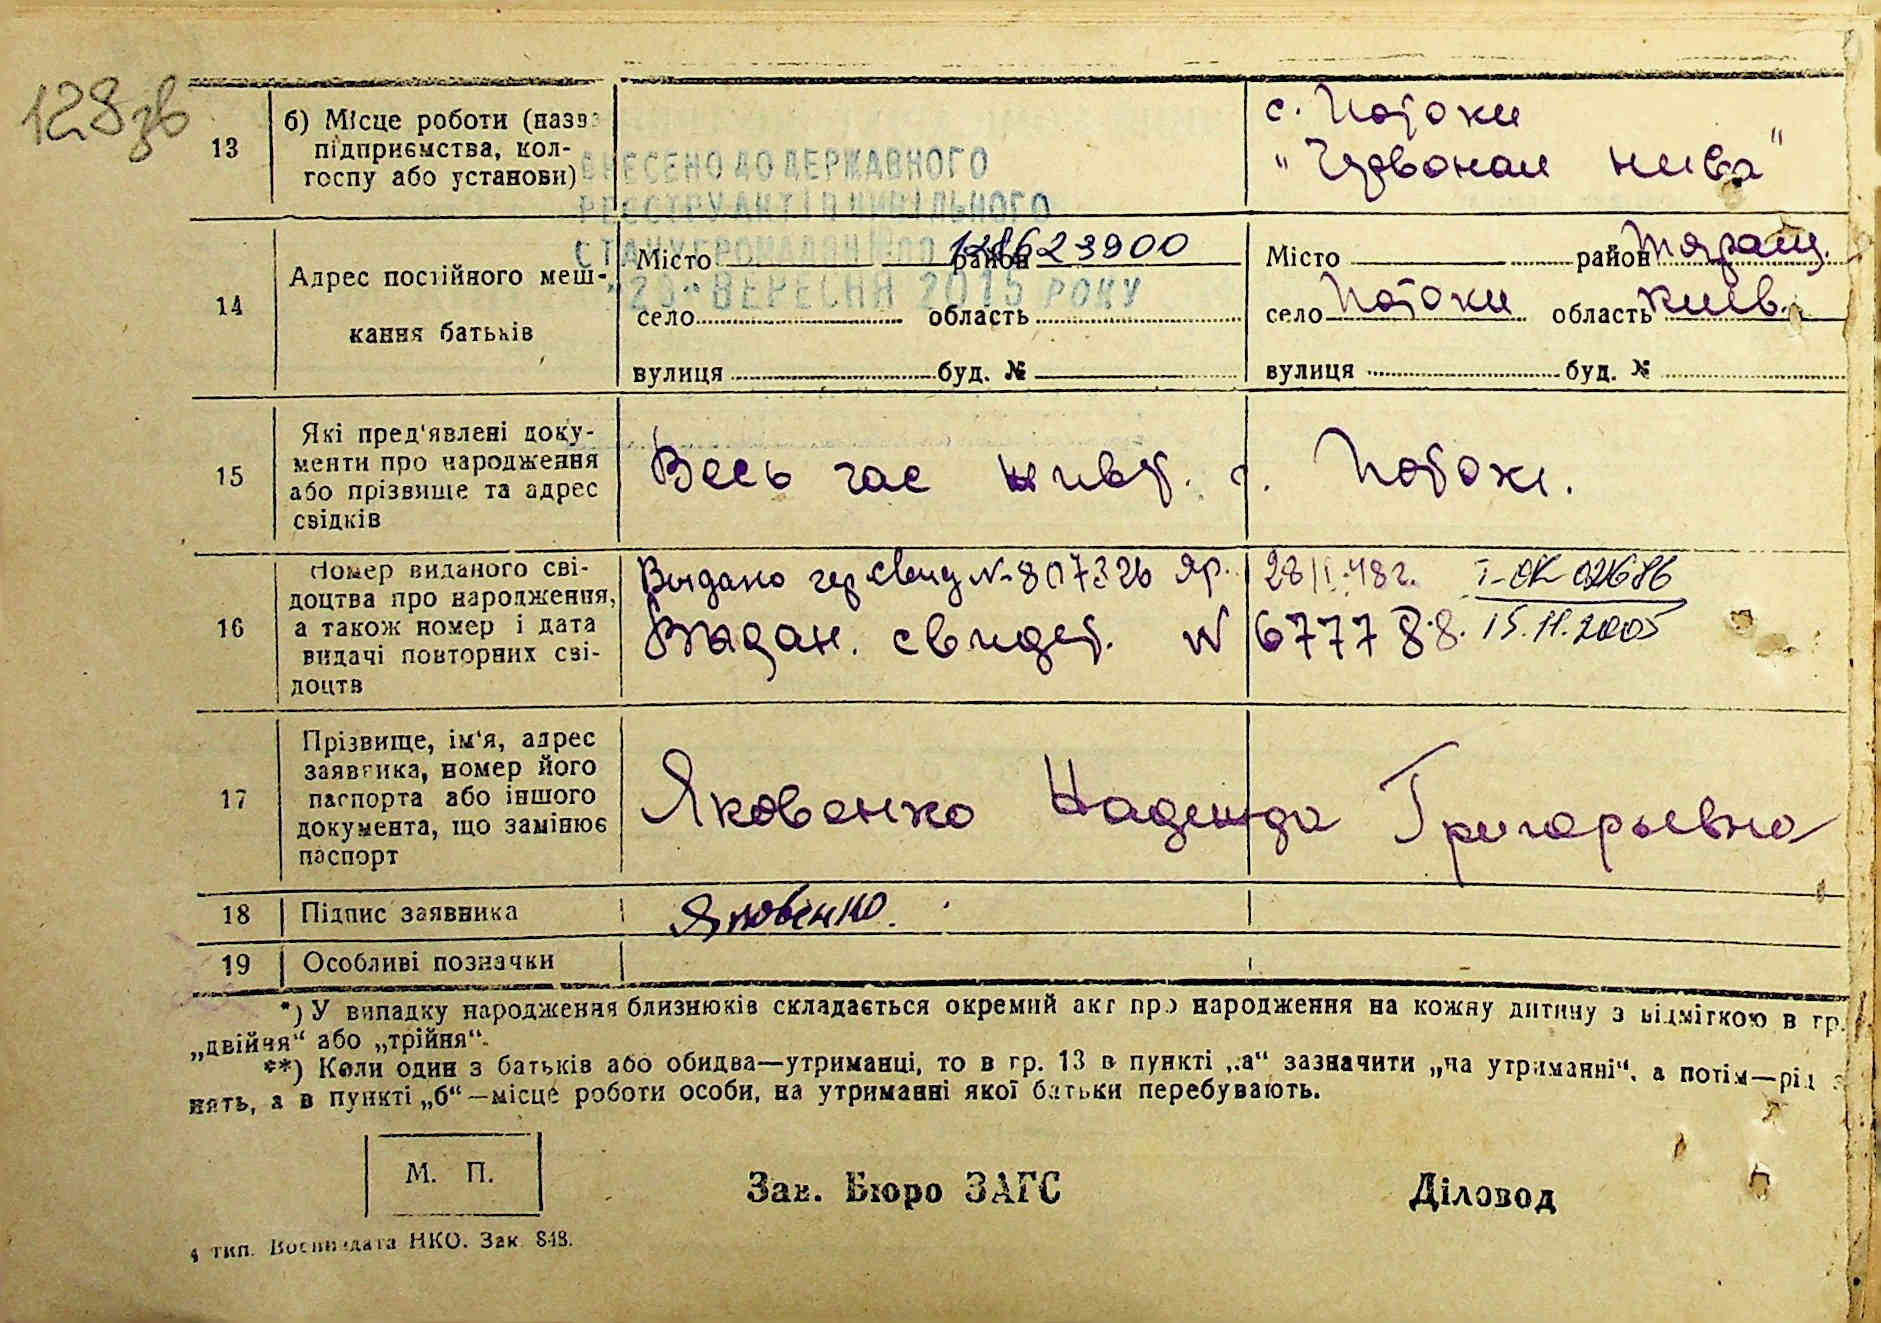 128зв
13
б) Місце роботи (назва
підприємства, кол-
госпу або установи)
с. Потоки
" Червоная нива"
ВНЕСЕНО ДО ДЕРЖАВНОГО
РЕЄСТРУ АКТІВ ЦИВІЛЬНОГО
СТАНУ ГРОМАДЯН 128623900
"29" ВЕРЕСНЯ 2015 РОКУ
14
Адрес постійного меш-
кання батьків
Місто район
село область
вулиця буд. №
Місто район Таращ.
село Потоки область Киів.
вулиця буд. №
15
Які пред'явлені доку-
менти про народження
або прізвище та адрес
свідків
Весь час живут. с. Потоки.
16
Номер виданого сві-
доцтва про народження,
а також номер і дата
видачі повторних сві-
доцтв
Видано № 807326 28/ 48г.
Выдан. свидет. N 677788.
I-ОК 021686
15.11.2005
17
Прізвище, ім'я, адрес
заявника, номер його
паспорта або іншого
документа, що замінює
паспорт
Яковенко Надежда Григорьевна
18 Підпис заявника Яковенко.
19 Особливі позначки
*) У випадку народження близнюків складається окремий акт про народження на кожну дитину з відміткою в гр.
„двійня“ або „трійня“.
**) Коли один з батьків або обидва—утриманці, то в гр. 13 в пункті „а“ зазначити „на утриманні“, а потім—рід з
нять, а в пункті „б“—місце роботи особи, на утриманні якої батьки перебувають.
М. П.
Зав. Бюро ЗАГС
Діловод
4 тип. Воениздата НКО. Зак. 848.